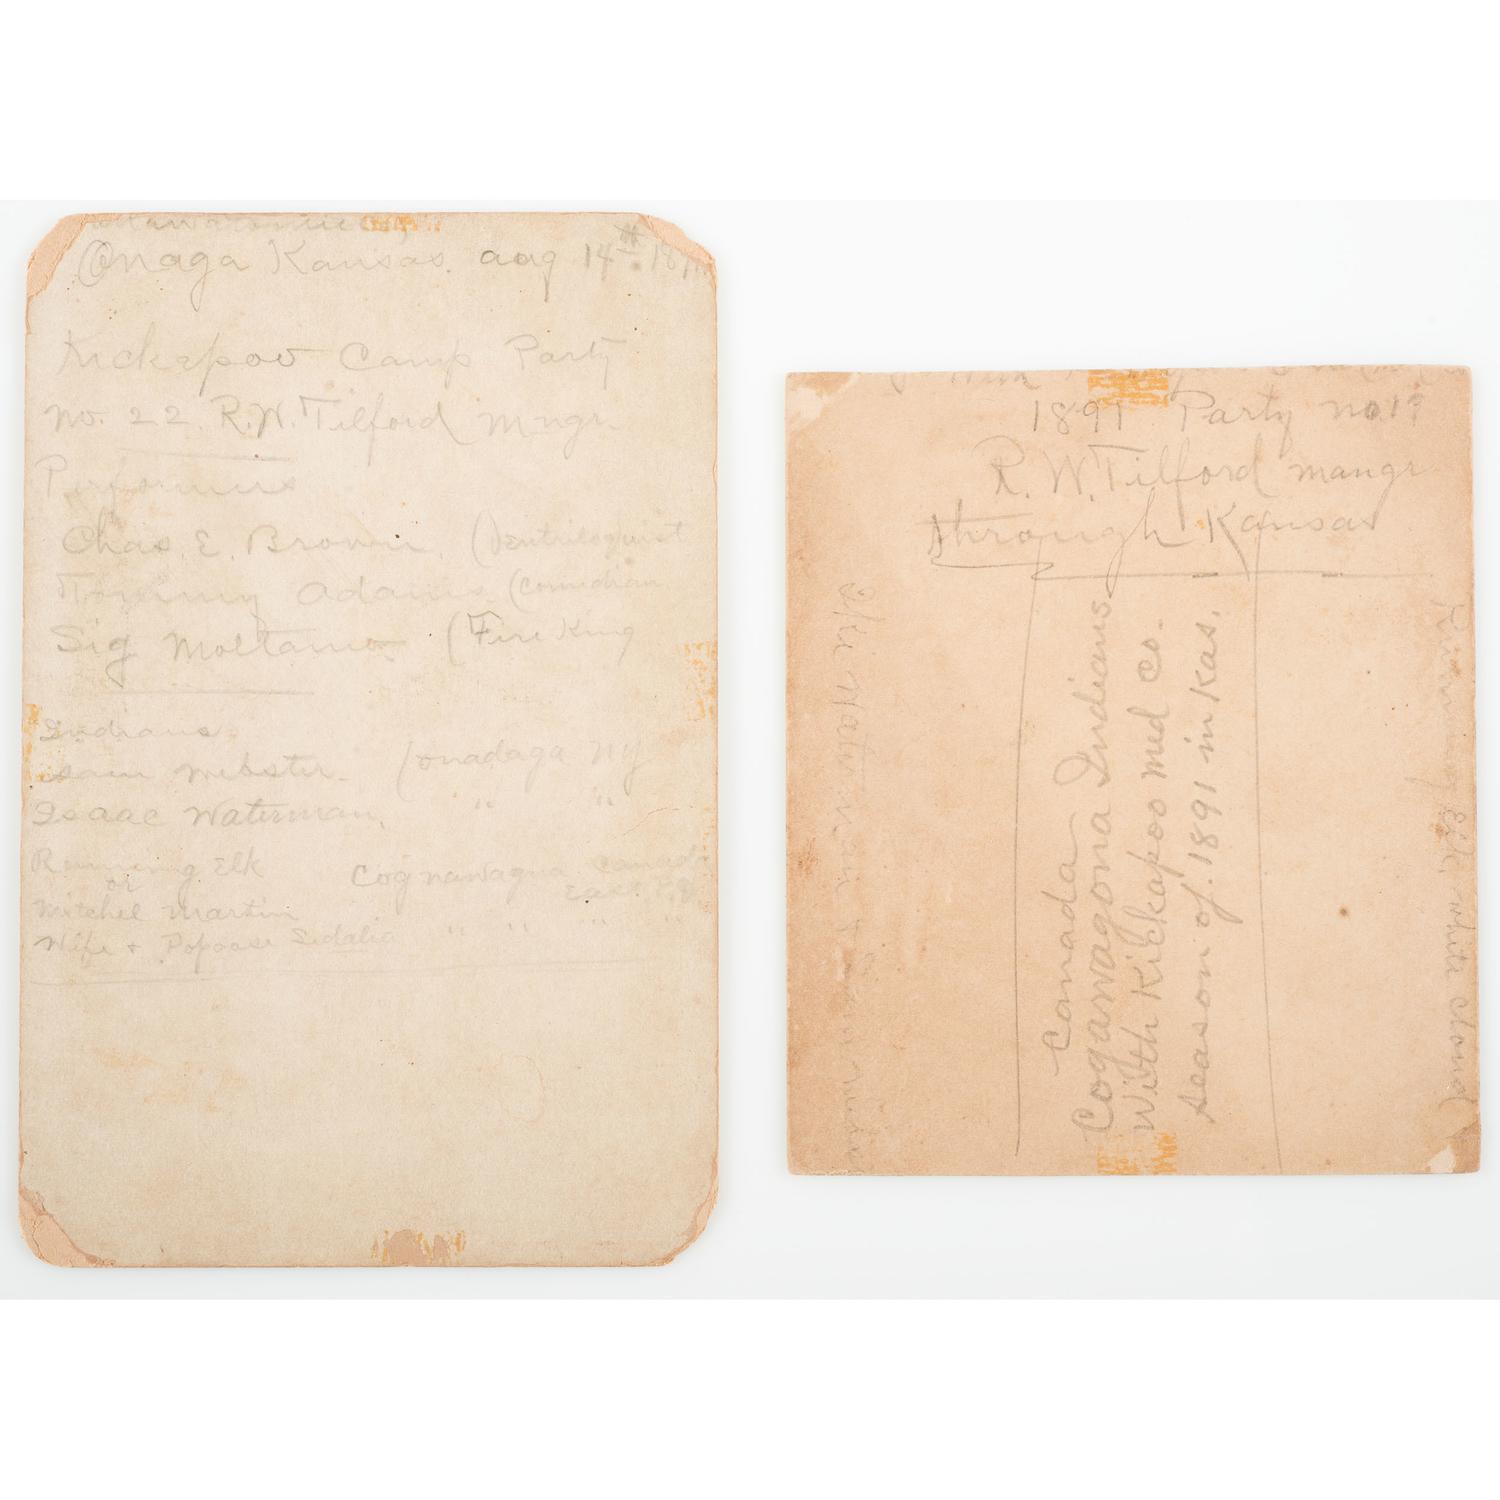 Onaga Kansas. aug 14th. 18
Kickapoo Camp Party
No. 22. R.W. Tilford Mngr.
Performers
Chas. E. Brown. (Ventriloquist
Tommy Adams. (Comedian
Sig Moltano. (Fire King
Indians.
Sam Webster. (Onadaga NY
Isaac Waterman. " "
Running Elk Cognawagna Canada
or East P.Q.
Mitchel Martin
Wife + Popoose Sedalia " " " "
1891 Party no.
R. W. Tilford mangr
through Kansas
Canada
Cogawagona Indians
With Kickapoo Med Co.
season of. 1891 in Kas.
Running Elk, White Cloud